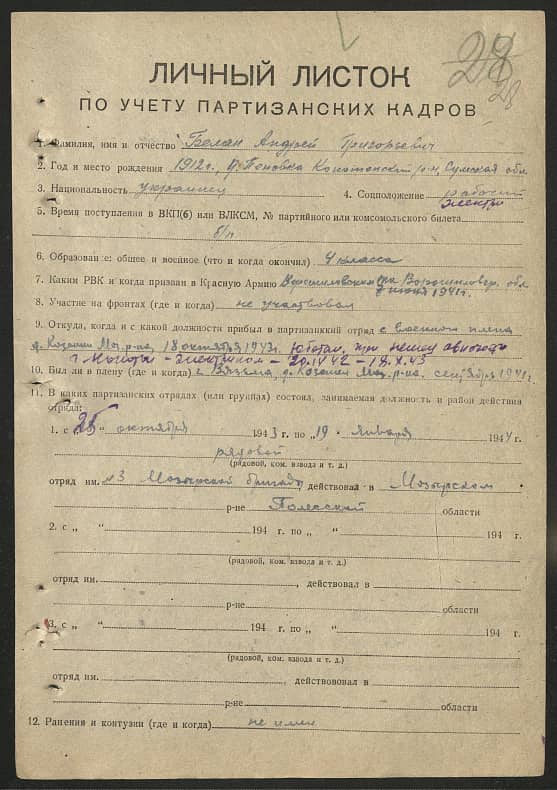 28
28
ЛИЧНЫЙ ЛИСТОК
ПО УЧЕТУ ПАРТИЗАНСКИХ КАДРОВ
1. Фамилия, имя и отчество Белан Андрей Григорьевич
2. Год и место рождения 1912 г., Поповка Конотопский р-н, Сумская обл.
3. Национальность украинец 4. Соцположение рабочий
электр
5. Время поступления в ВКП(б) или ВЛКСМ, № партийного или комсомольского билета
б/п
6. Образование: общее и военное (что и когда окончил) 4 класса
7. Каким РВК и когда призван в Красную Армию Ворошиловским Ворошиловгр. обл.
июня 1941 г.
8. Участие на фронтах (где и когда) не участвовал
9. Откуда, когда и с какой должности прибыл в партизанский отряд с военного плена
д. Козенки Моз. р-на, 18 октября 1943 г. Работал при
электриком – 20.IV 42 – 18.X.43
10. Был ли в плену (где и когда) г. Вязьма, д. Козенки Моз. р-на. сентября 1941 г.
11. В каких партизанских отрядах (или группах) состоял, занимаемая должность и район действия
отряда:
1. с „25“ октября 1943 г. по „19“ января 1944 г.
рядовой
(рядовой, ком. взвода и т. д.)
отряд им. №3 Мозырской бригады, действовал в Мозырском
р-не Полесской области
2. с „ “ 194 г. по „ “ 194 г.
(рядовой, ком. взвода и т. д.)
отряд им. , действовал в
р-не области
3. с „ “ 194 г. по „ “ 194 г.
(рядовой, ком. взвода и т. д.)
отряд им. , действововал в
р-не области
12. Ранения и контузии (где и когда) не имел